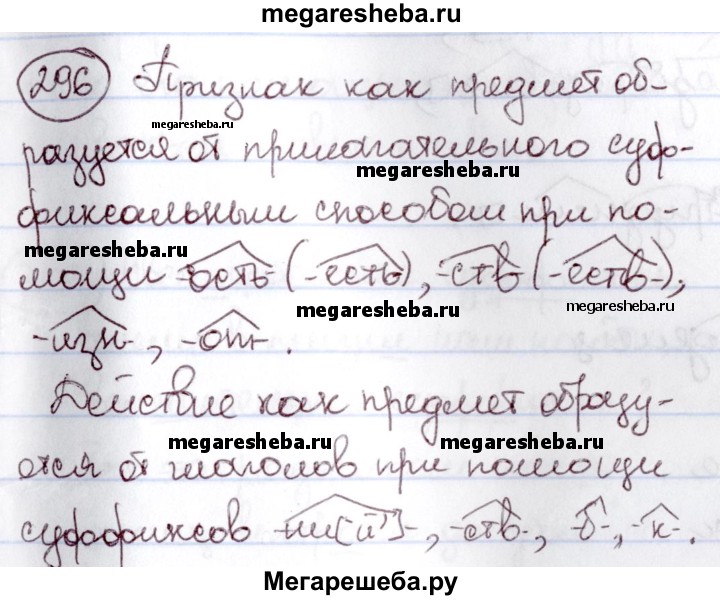 megaresheba.ru
296 Признак как предмет об-
megaresheba.ru
разуется от прилагательного суф-
megaresheba.ru
фиксальным способом при по-
megaresheba.ru
мощи -ость- (-есть-), -ств- (-еств-),
megaresheba.ru megaresheba.ru
-изн-, -от-.
Действие как предмет образу-
megaresheba.ru megaresheba.ru
ется от глаголов при помощи
суффиксов -ни[й']-, -ств-, -б-, -к-.
Мегарешеба.ру